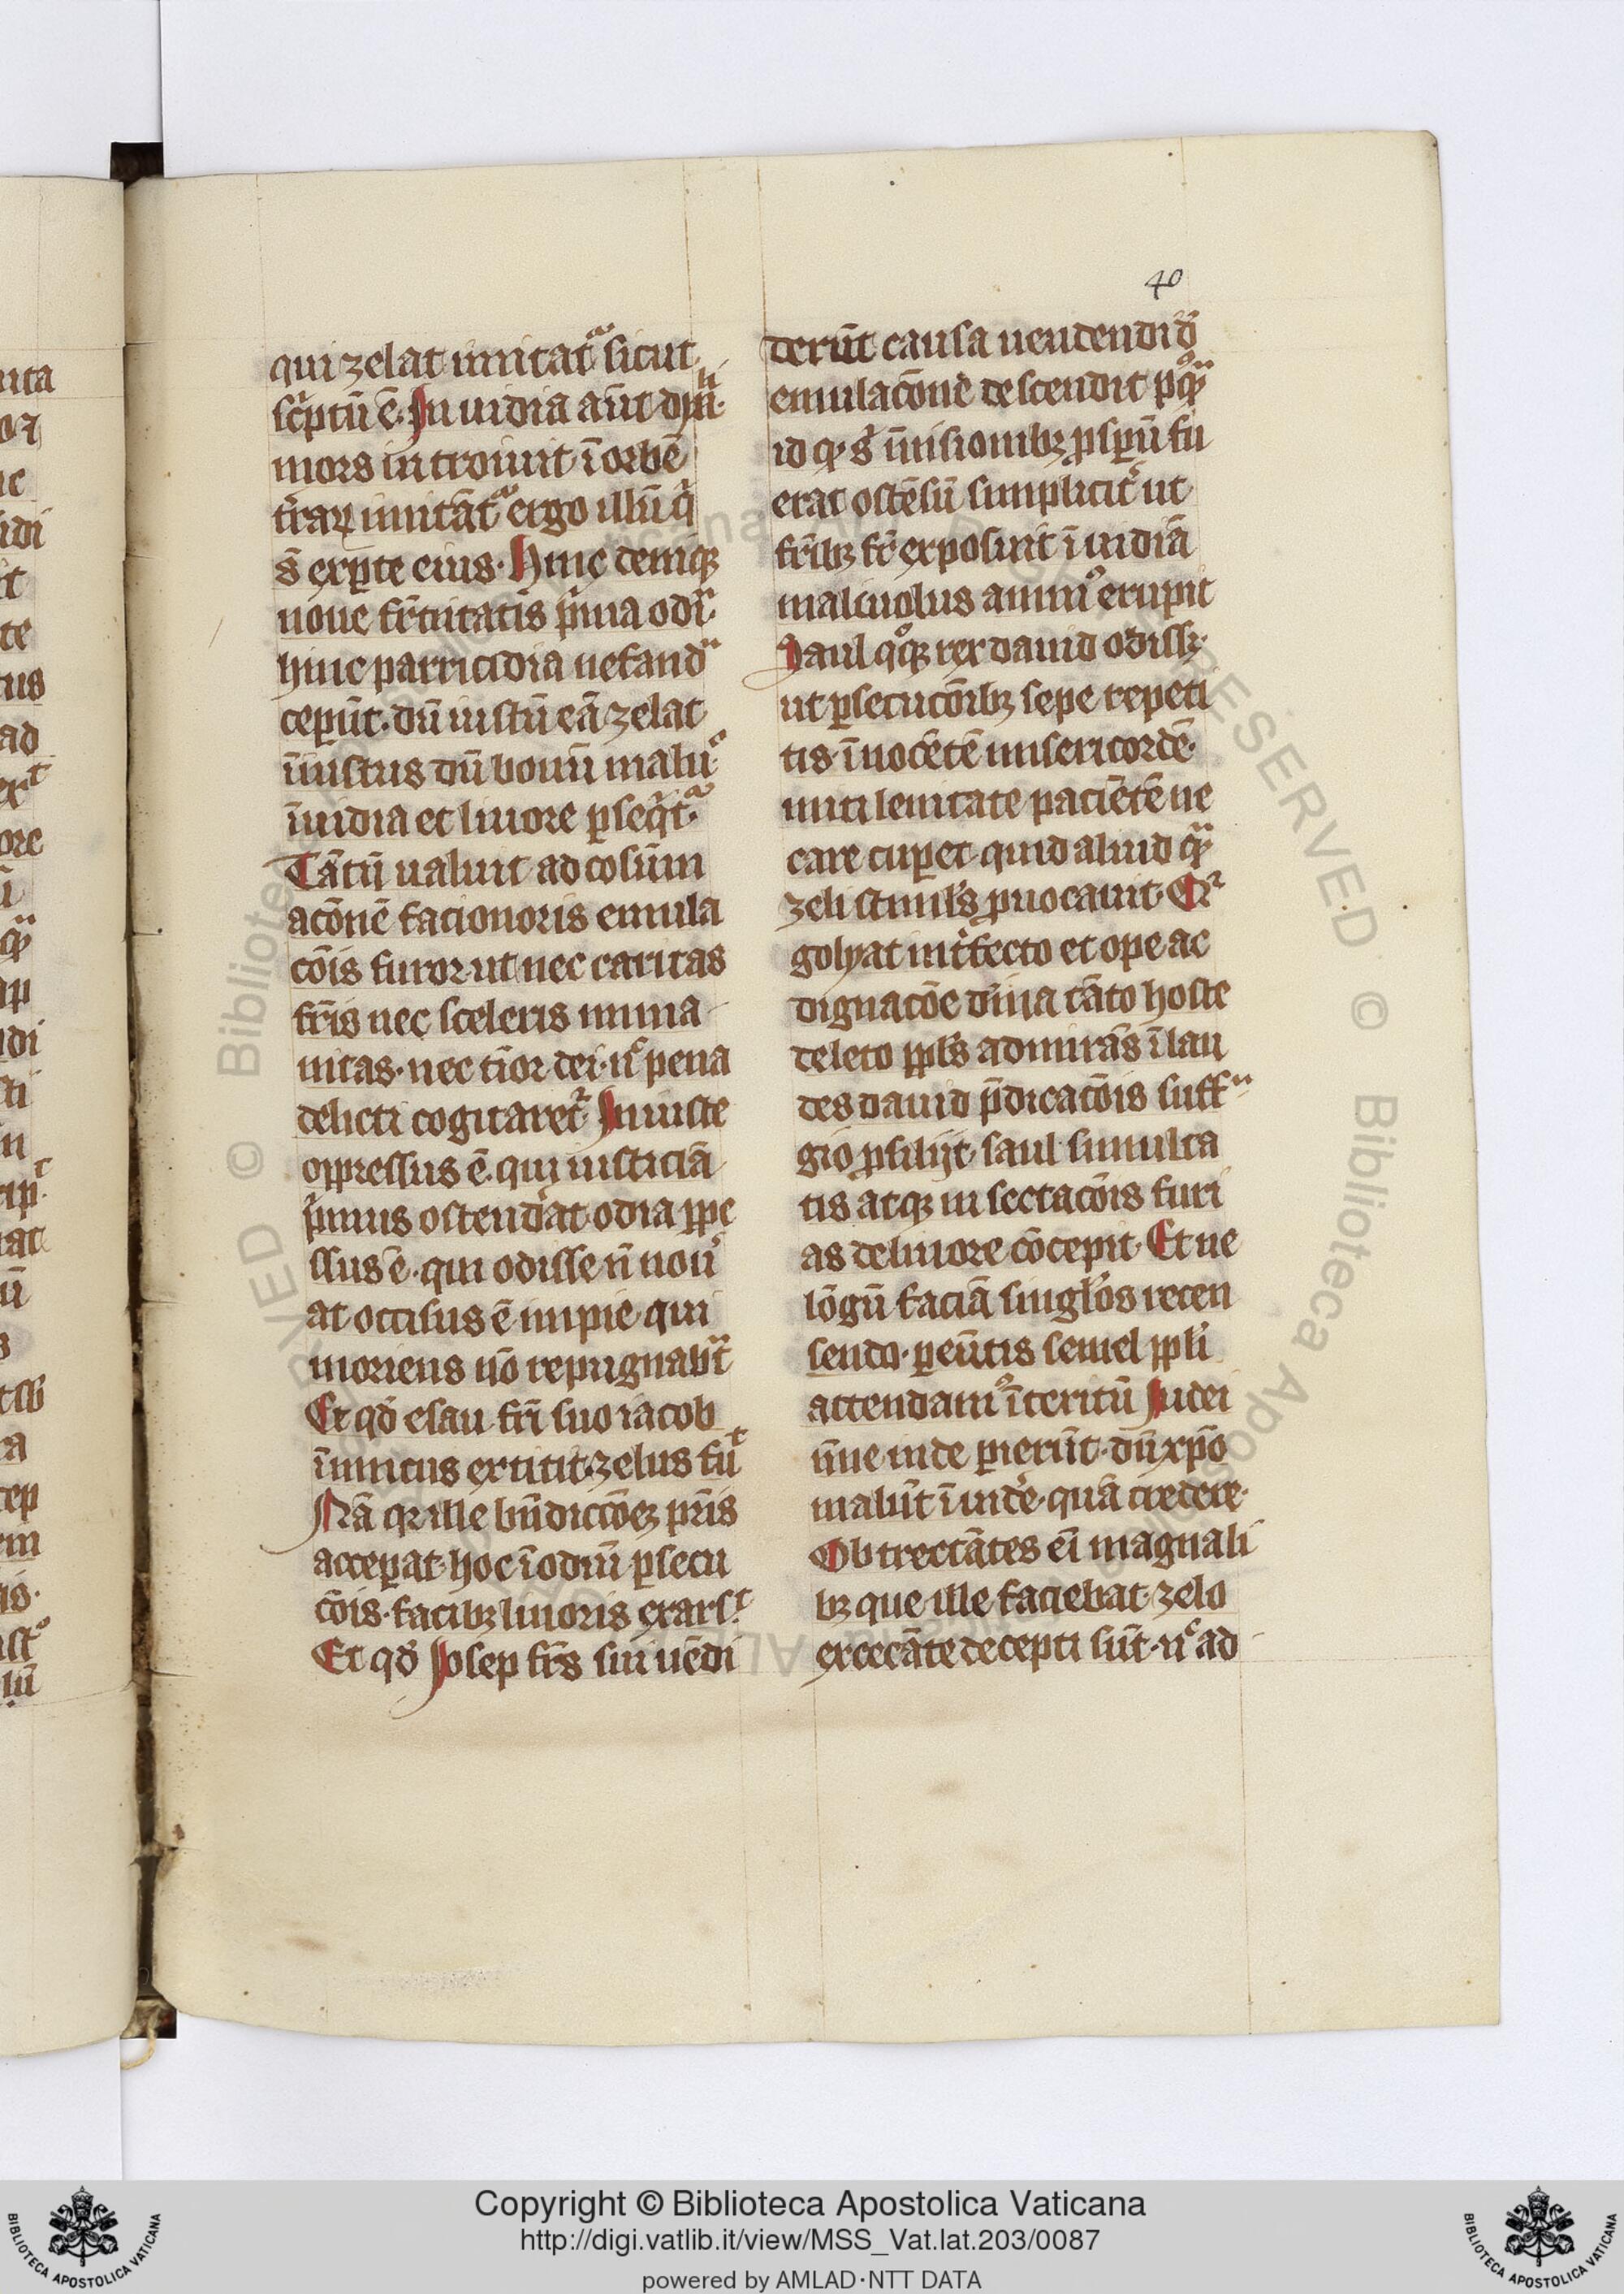 40
qui zelat imitat᷑ sicut
sc͛ptū ē. Inuidia aūt dyłi
mors introiuit ī orbē
t̄raꝝ imitāt᷑ ergo illū q̇
s̄ ex ꝑte eius. Hinc deniqꝫ
noue fr̄nitatis p̓ma odi͛.
hinc parricidia nefandᷓ
ceperūt. dū iustū eā zelat
īiustus dū bonū malꝰ
īuidia et liuore ꝑseq̇t᷑.
Tātū ualuit ad cosūm
acōnē facionoris emula
cōis furor ut nec caritas
fr̄is nec sceleris imma
nitas. nec tīor dei. nͨ pena
delicti cogitaret᷑. Iniuste
oppressus ē. qui iusticiā
p̓mus ostend̓at odia ꝑpe
ssus ē. qui odisse n̄ nou͛
at occisus ē impie qui
moriens nō repugnabᷓt
Et qđ esau fr̄i suo iacob
īimicus extitit. zelus fuͭ
Nā qꝛ ille bn̄dictōeꝫ pr̄is
acceꝑat. hoc ī odiū ꝑsecu
cōis. facibꝫ liuoris exars͛ͭ
Et qđ Iosep fr̄s sui uēdi
derūt causa uendendi đ
emulacōne descendit pꝰqᷓ
id qđ s̓ uisionibꝫ ꝓsꝑū fu
erat ostēsū simplicit͛ ut
fr̄ibꝫ fr̄ exposuit ī uidiā
maliuolus animꝰ erupit
Saul qͦqꝫ rex dauid odissꝫ
ut ꝑsecutōibꝫ sepe repeti
tis īnocētē misericordē.
miti lenitate paciētē ne
care cuꝑet quid aliud qᷓ
zeli stimłs ꝓuocauit. Qꝛ
golyat int̓fecto et ope ac
dignacōe diuīa tāto hoste
deleto ppłs admirās ī lau
des dauid p̄dicacōis suffᷓ
gio ꝓsilijt. saul simulta
tis atqꝫ insectacōis furi
as de liuore cōcepit. Et ne
lōgū faciā singłos recen
sendo. ꝑeūtis semel ppłi
attendamꝰ īteritū Iudei
nōne inde ꝑierūt. dū xp̄o
malūt ī uid̓e. quā credere.
Obtrectātes eī magnali
bꝫ que ille faciebat. zelo
excecāte decepti sūt. nͨ ad
Copyright © Biblioteca Apostolica Vaticana
http://digi.vatlib.it/view/MSS_Vat.lat.203/0087
powered by AMLAD·NTT DATA